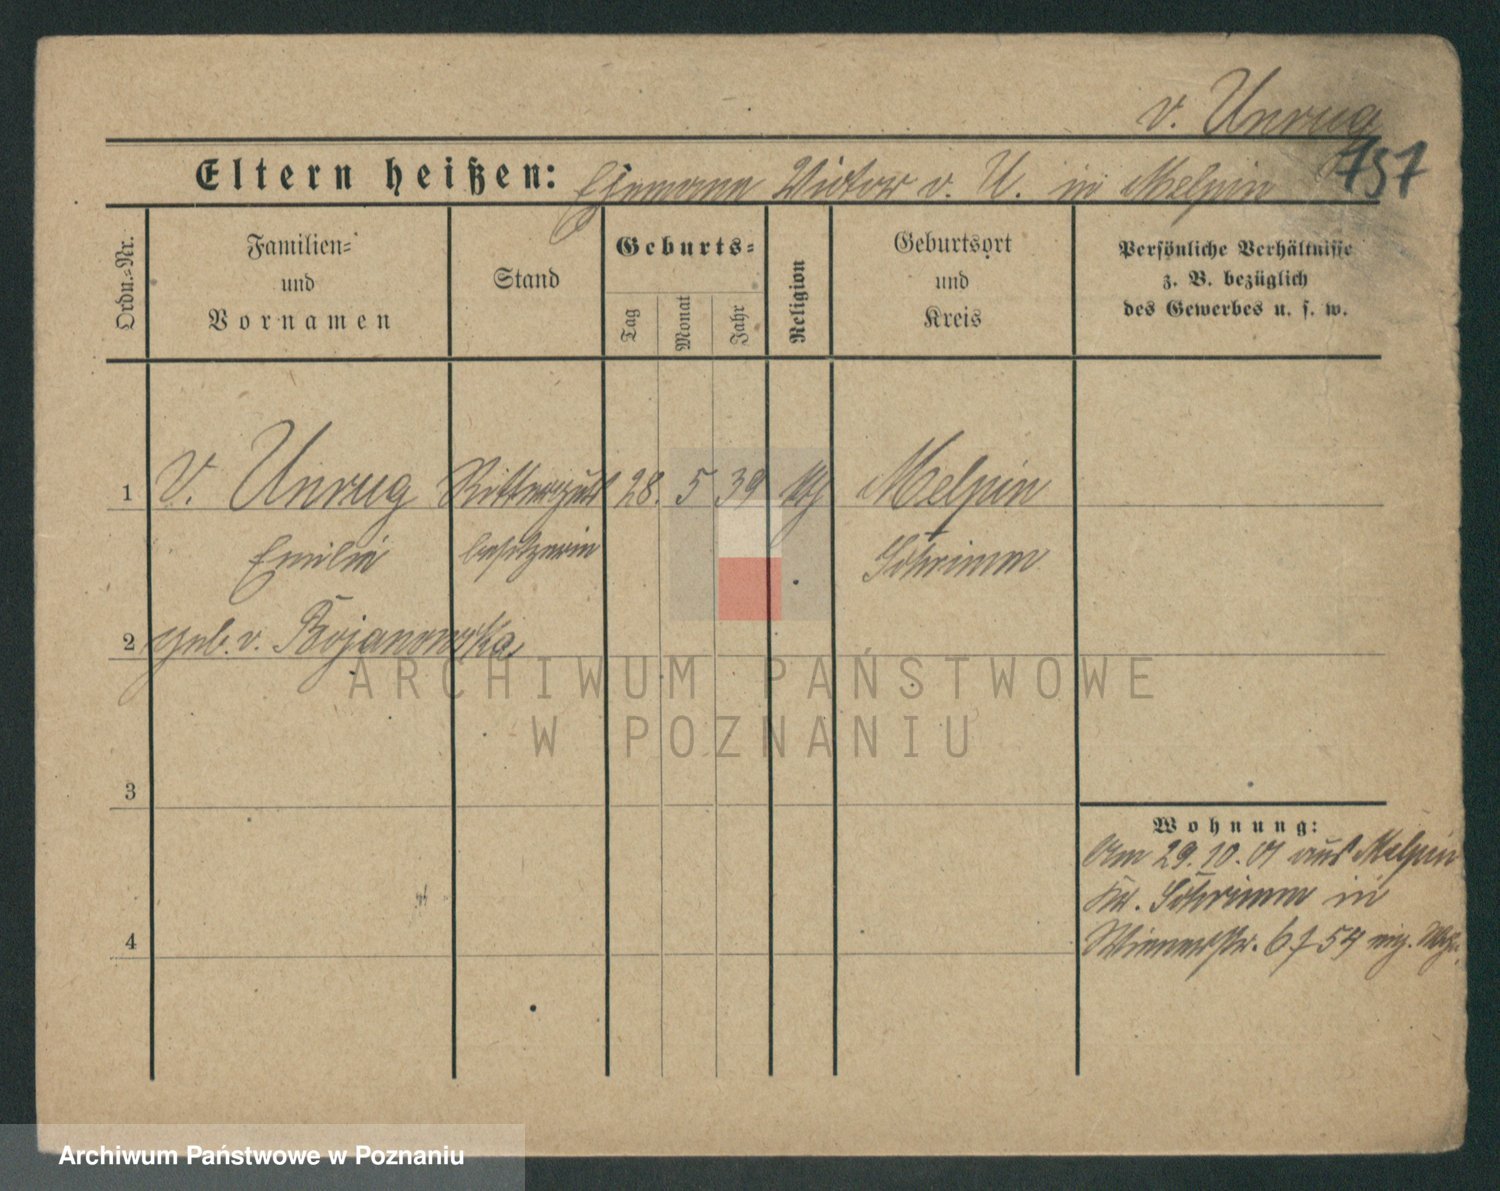 v. Unrug
757
Eltern heißen: Ehemann Victor v. U. in Melpin
Ordn.=Nr.
Familien=
und
Vornamen
Stand
Geburts=
Tag
Monat
Jahr
Religion
Geburtsort
und
Kreis
Persönliche Verhältnisse
z. B. bezüglich
des Gewerbes u. s. w.
1 v. Unrug Ritterguts 28. 5 39 Melpin
Emilie besitzerin Schrimm
2 geb. v. Bojanowska
3
4
Wohnung:
Am 29.10.01 aus Melpin
Kr. Schrimm in
Wienerstr. 6 754
ARCHIWUM PAŃSTWOWE
W POZNANIU
Archiwum Państwowe w Poznaniu